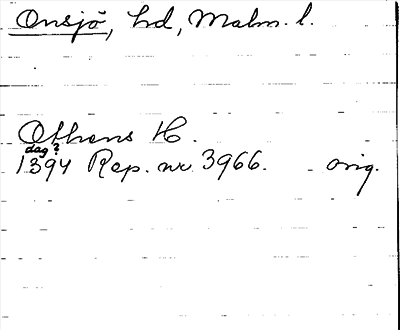 Onsjö, hd, Malm. l.
Othens H.
dag?
1394 Rep. nr 3966. orig.